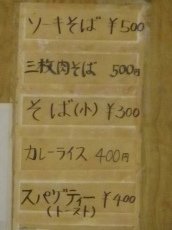 ソーキそば ¥500
三枚肉そば 500円
そば(小) ¥300
カレーライス 400円
スパゲティー ¥400
(トースト)